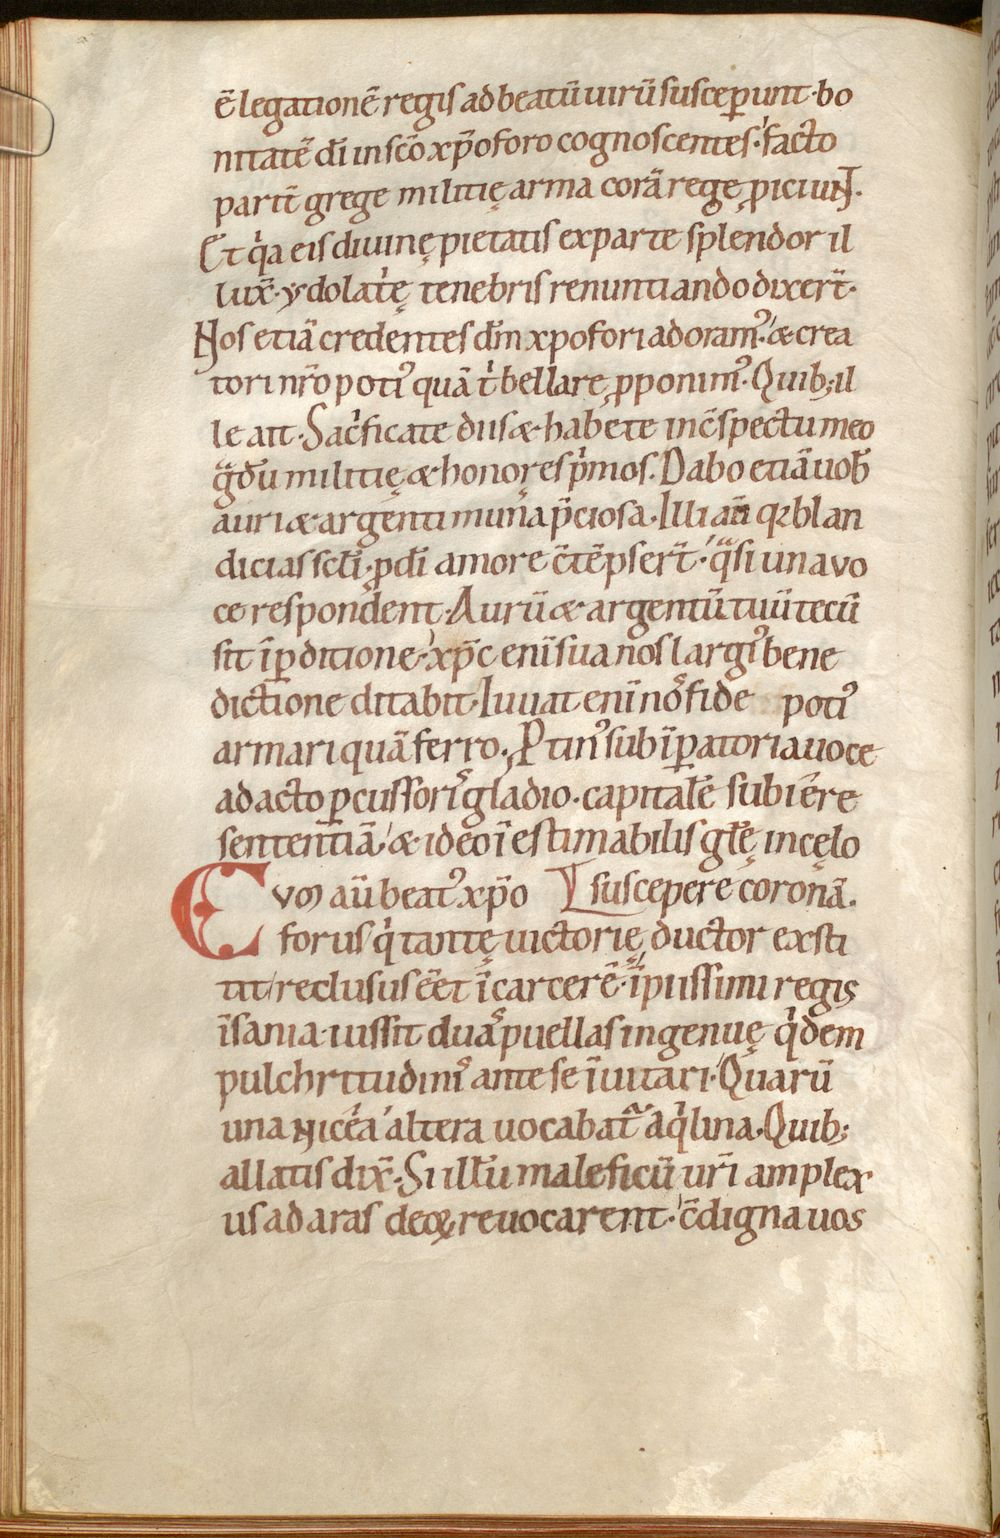 ē legationē regis ad beatū uirū susceꝑunt· bo
nitatē dī in scō xp̄oforo cognoscentes·' facto
partī grege militię arma corā rege ꝓiciunt.
Et qͥa eis diuinę pietatis ex parte splendor il
lux̄· ydolatͥę tenebris renuntiando dixert̄·
Nos etiā credentes dm̄ xpofori adoramꝰ·' & crea
tori nr̄o potiꝰ quā tͥ bellare ꝓponimꝰ· Quib; il
le ait· Sacͥficate diis & habete in c̄spectu meo
gͣdū militię & honores pͥmos. Dabo etiā uob̄
auri & argenti mun̄a p̄ciosa· Illi aū qꝛ blan
dicias sclī· ꝓ dī amore c̄tēpsert̄·' qͣsi una vo
ce respondent· Aurū & argentū tuū tecū
sit ī ꝑditione·' xp̄c enī sua nos largiꝰ bene
dictione ditabit· Iuuat enī nos fide potiꝰ
armari quā ferro. Ptinꝰ sub īꝑatoria uoce
adacto ꝑcussoris gladio· capitalē subiēre
sententiā·' & ideo īestimabilis glę̄ in cęlo
Evo) aū beatꝰ xp̄o suscepere coronā.
forus qͥ tantę uictorię ductor exsti
tit reclusus eēt ī carcere·' īpiissimi regis
īsania· iussit duas puellas ingenuę qͥdem
pulchritudinis ante se īuitari· Quarū
una nicēa altera uocabat̄ aqͥlina· Quib;
allatis dix̄· Si illū maleficū urī amplex
us ad aras deoꝝ reuocarent·' c̄digna uos